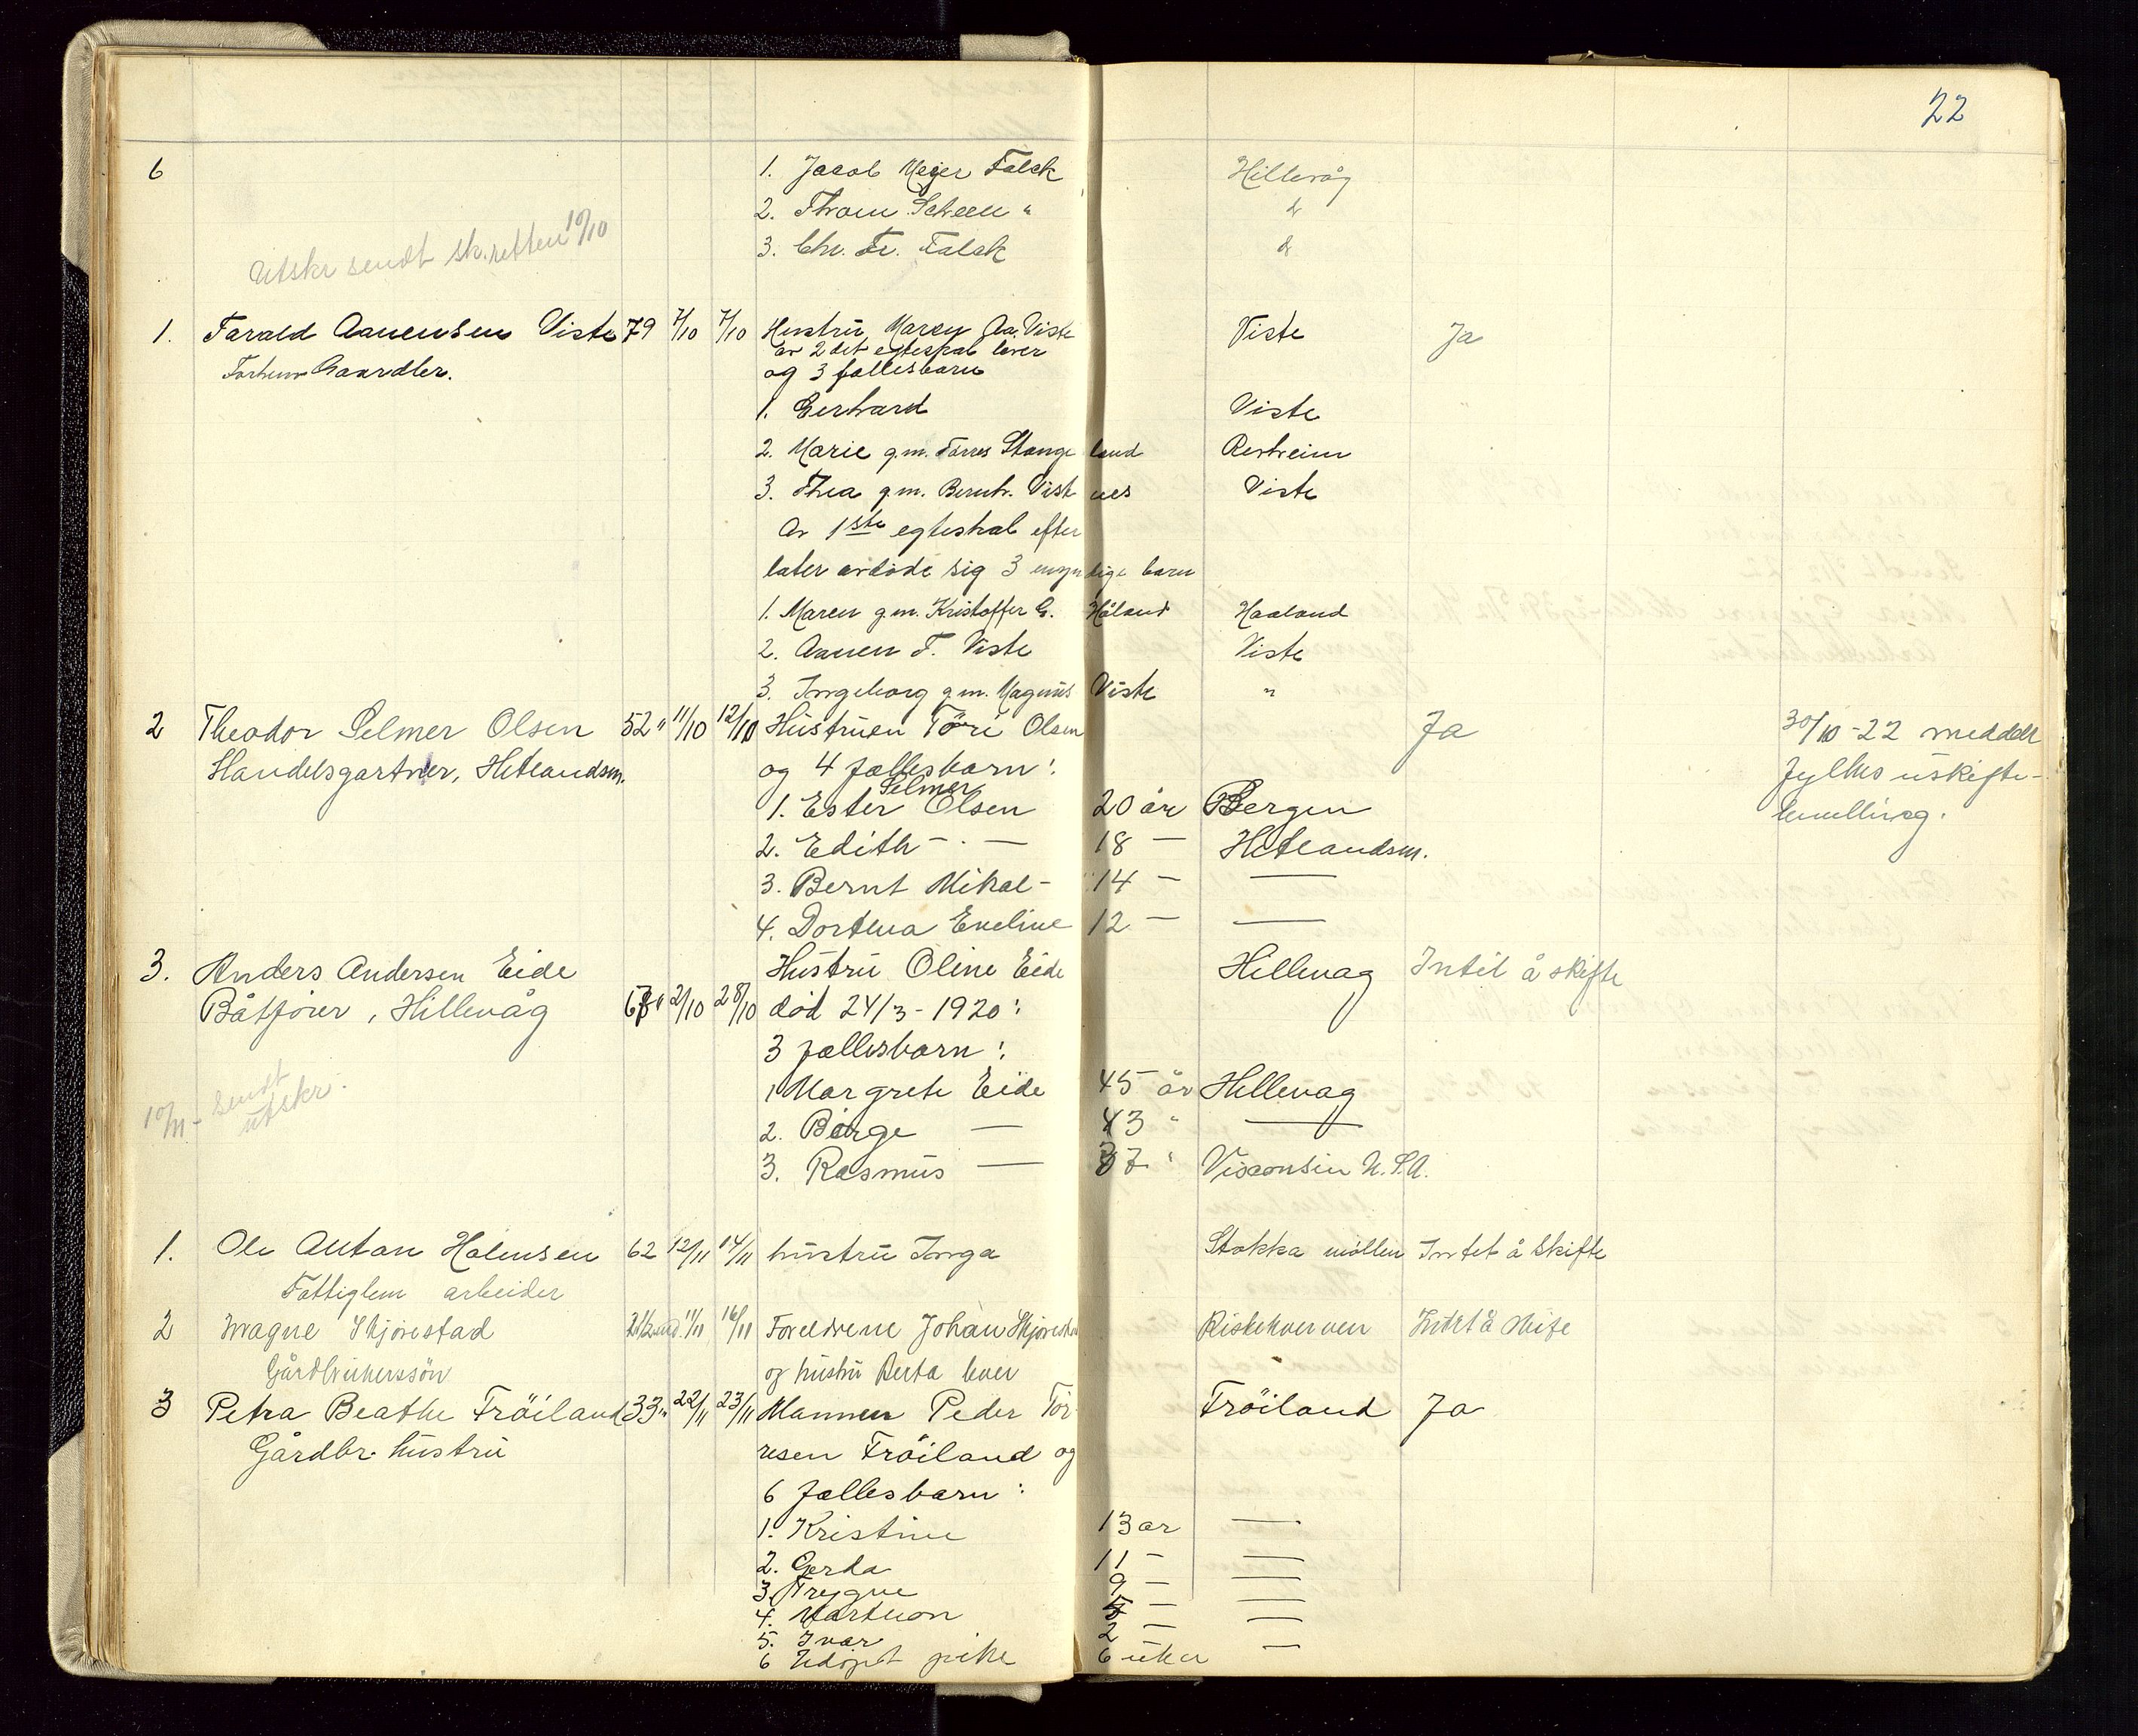 22
6 1. Jacob Mejer Falck Hillevåg
2. Thom Scheen " do
3. Chr. Fr. Falck do
Utskr sendt sk.retten 10/10
1. Tarald Aanensen Viste 79 7/10 7/10 Hustru Maren Aa. Viste Viste Ja
av 2det egteskab lever
Forhenv Gaardbr. og 3 fællesbarn
1. Gerhard Viste
2. Marie g.m. Tørres Stangeland Restreim
3. Thea g.m. Bernh. Vistnes Viste
Av 1ste egteskab efter
later avdøde sig 3 myndige barn
1. Maren g.m. Kristoffer G. Håland Haaland
2. Aanen T. Viste Viste
3. Ingeborg g.m. Magnus Viste "
2 Theodor Selmer Olsen 52 " 11/10 12/10 Hustruen Töri Olsen Ja 30/10-22 meddelt
Handelsgartner, Hetlandsm. og 4 fællesbarn: fylkes uskifte-
1. Ester Selmer Olsen 20 år Bergen bevilling.
2. Edith - . — 18 — Hetlandsm.
3. Bernt Mikal - 14 — —
4. Dortena Eveline 12 — —
3. Anders Andersen Eide Hustru Oline Eide Hillevag Intet å skifte
Båtfører, Hillevåg 2/10 28/10 död 24/3 - 1920:
3 fællesbarn:
10/11 - sendt utskr. 1 Margrete Eide 45 år Hillevag
2. Börge — 43 " —
3. Rasmus — 37 " Visconsin U.S.A.
1. Ole Anton Halvorsen 62 12/11 14/11 hustru Inga Stokka möllen Intet å skifte
Fattiglem arbeider
2 Magne Skjørestad 11/11 16/11 Foreldrene Johan Skjørestad Riskekverven Intet å skifte
Gårdbrukerssön og hustru Berta lever
3 Petra Beathe Fröiland 33 " 22/11 23/11 Mannen Peder Tör- Fröiland Ja
Gårdbr. hustru resen Fröiland og
6 fællesbarn:
1. Kristine 13 år —
2. Gerda 11 — —
3. Trygve 9 — —
4. —
5. Ivar 2 — —
6 Udöpt pike 6 uker —